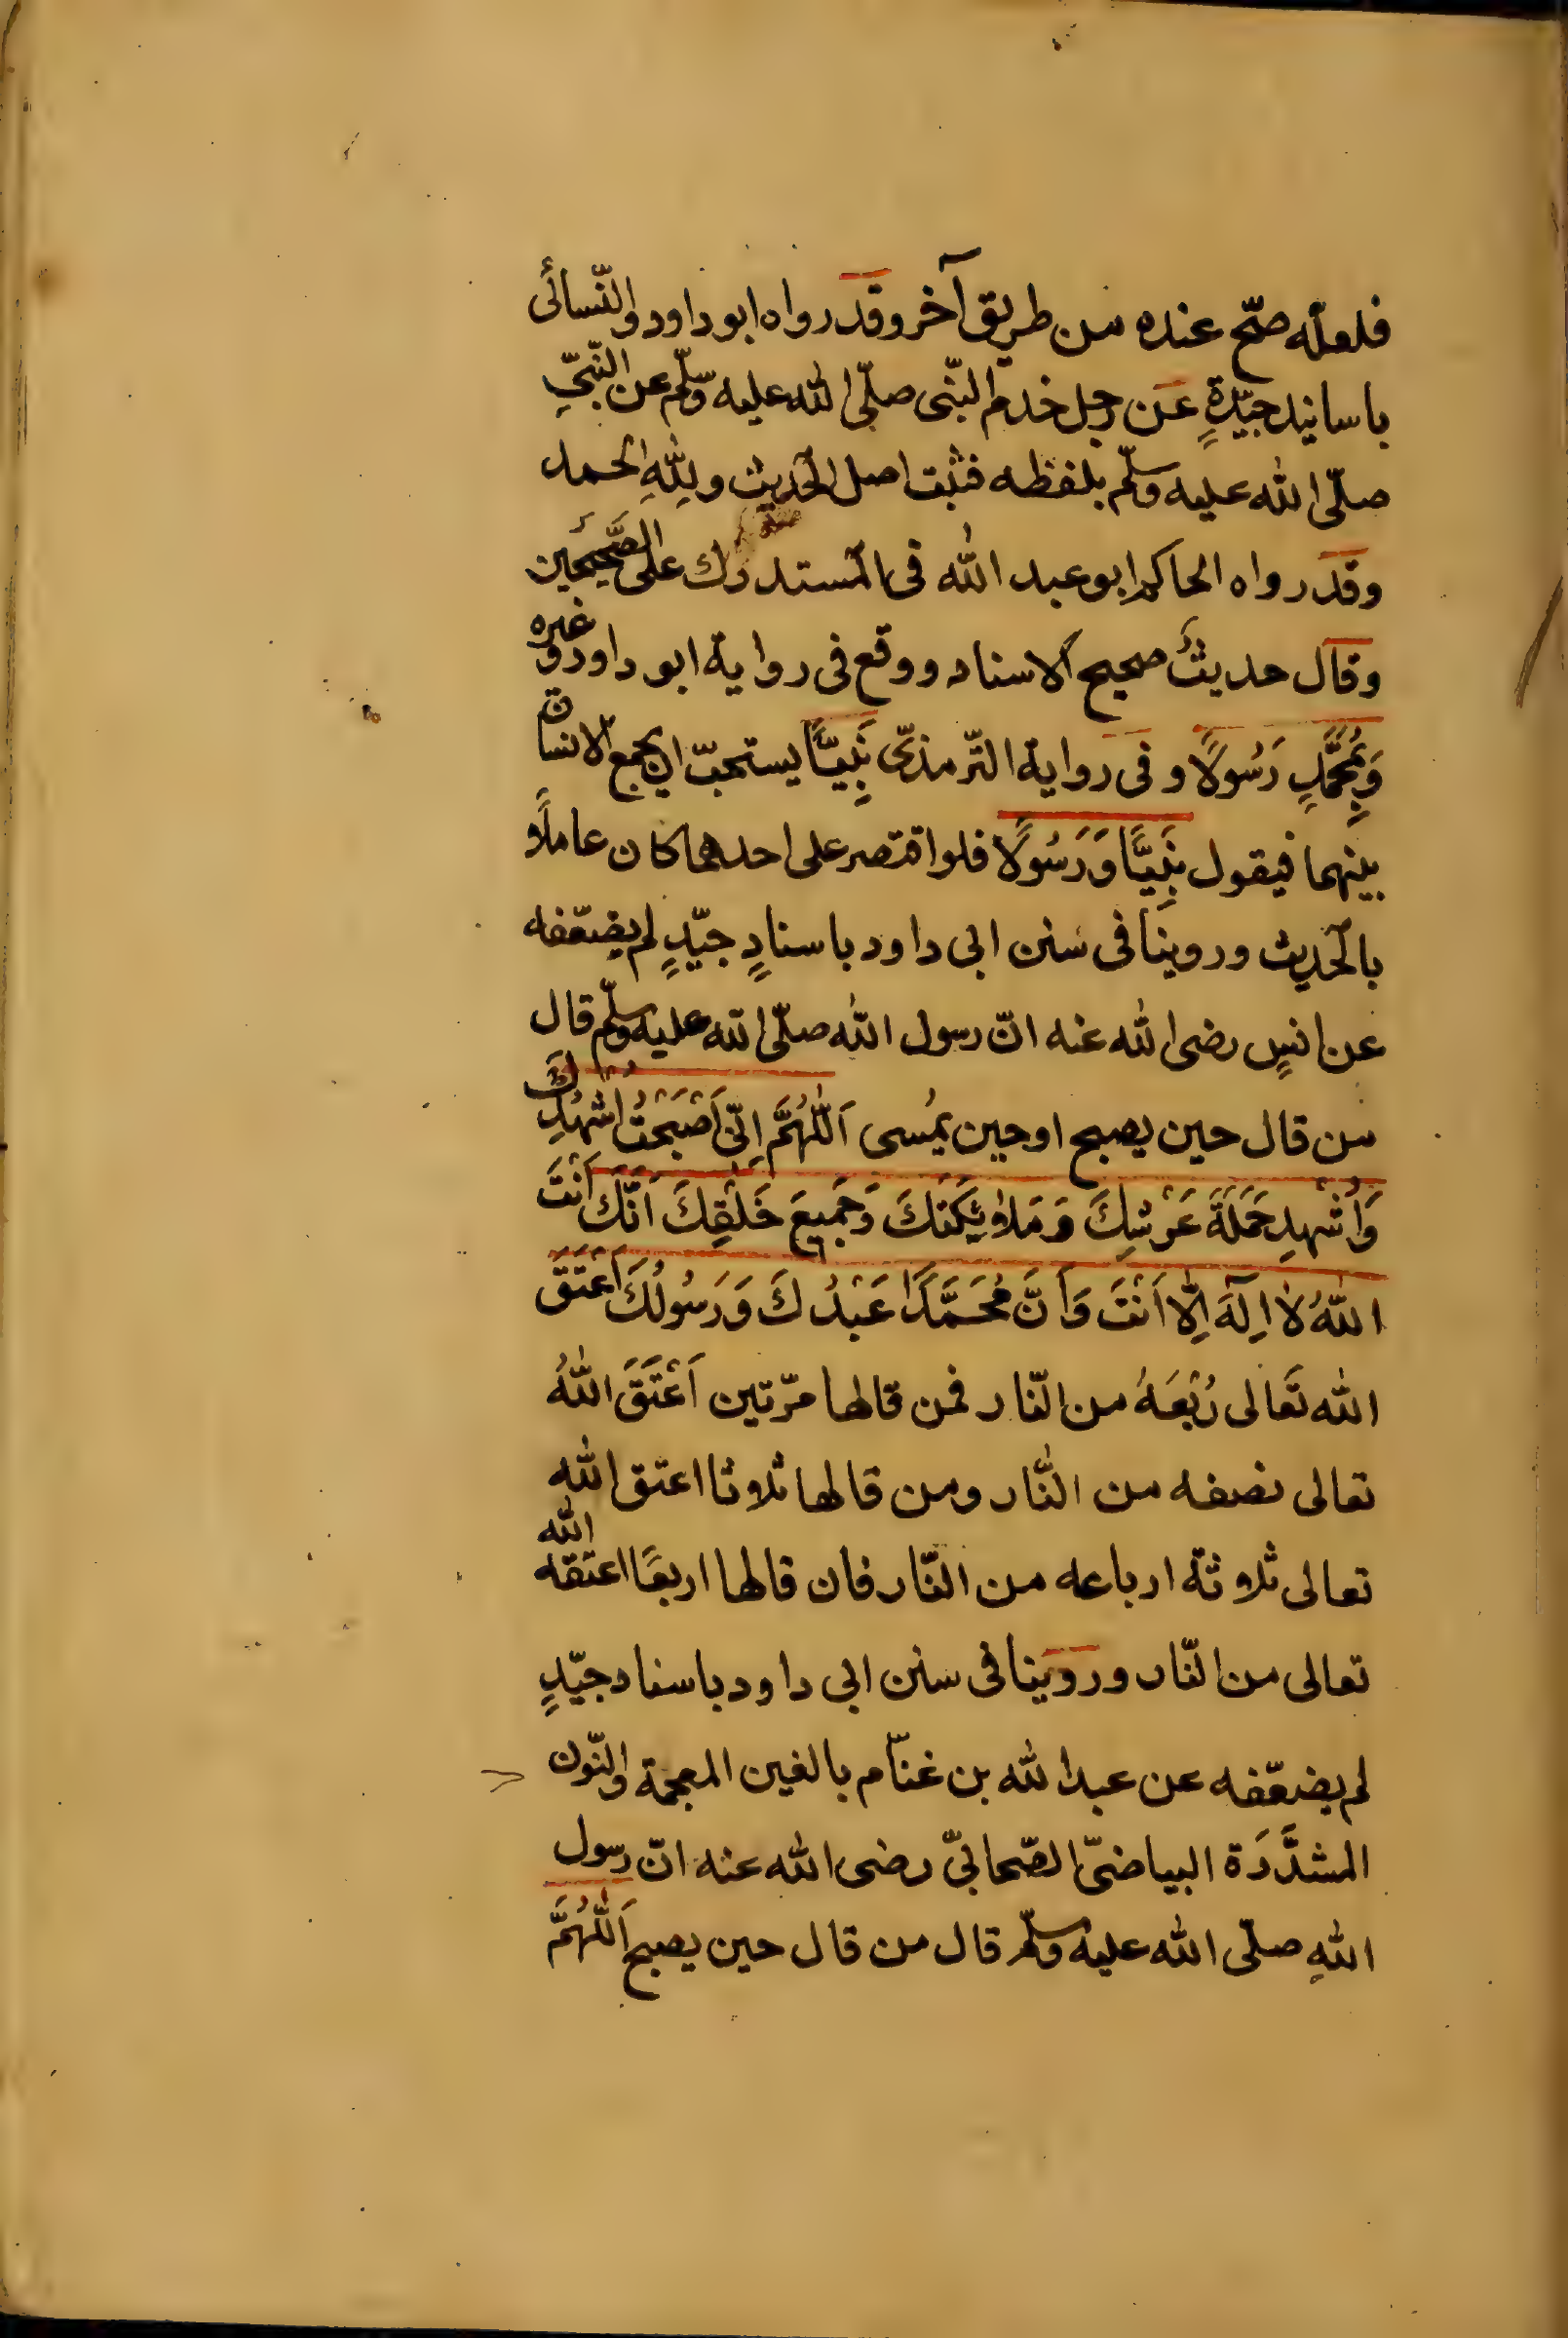 فلعلّه صحّ عنده من طريق آخر وقد رواه ابو داود والنّسائى
باسانيد جيّدةٍ عن رجل خدم النّبى صلّى الله عليه وسلّم عن النّبىّ
صلّى الله عليه وسلّم بلفظه فثبت اصل الحديث ولِلّٰهِ الحمد
وقد رواه الحاكم ابو عبد الله فى المستدرك على الصَّحيحين
وقال حديثٌ صحيح الاسناد ووقع فى رواية ابو داود وغيره
وَبِمُحَمَّدٍ رَسُولًا وفى رواية التّرمذىّ نَبِيًّا يستحبّ ان يجمع الانسان
بينهما فيقول نَبِيًّا وَرَسُولًا فلو اقتصر على احدهما كان عاملًا
بالحديث وروينا فى سنن ابى داود باسنادٍ جيّدٍ لم يضعّفه
عن انسٍ رضى الله عنه انّ رسول الله صلّى الله عليه وسلّم قال
من قال حين يصبح او حين يُمسى اَللّٰهُمَّ اِنّى اَصْبَحْتُ اُشْهِدُكَ
وَاُشْهِد حَمَلَةَ عَرْشِكَ وَمَلاٰئِكَتَكَ وَجَمِيعَ خَلْقِكَ اَنَّكَ اَنْتَ
اللّٰهُ لاٰ اِلٰهَ اِلّا اَنْتَ وَاَنَّ مُحَمَّدًا عَبْدُكَ وَرَسُولُكَ اَعْتَقَ
الله تَعَالى رُبْعَهُ من النّار فمن قالها مرّتين اَعْتَقَ اللّٰهُ
تعالى نصفه من النّار ومن قالها ثلاثا اعتق الله
تعالى ثلاثة ارباعه من النّار فان قالها اربعًا اعتقه الله
تعالى من النّار وروينا فى سنن ابى داود باسناد جيّدٍ
لم يضعّفه عن عبد الله بن غنّام بالغين المعجمة والنّون
المشدَّدَة البياضىّ الصّحابىّ رضى الله عنه انّ رسول
اللهِ صلّى الله عليه وسلّم قال من قال حين يصبح اَللّٰهُمَّ